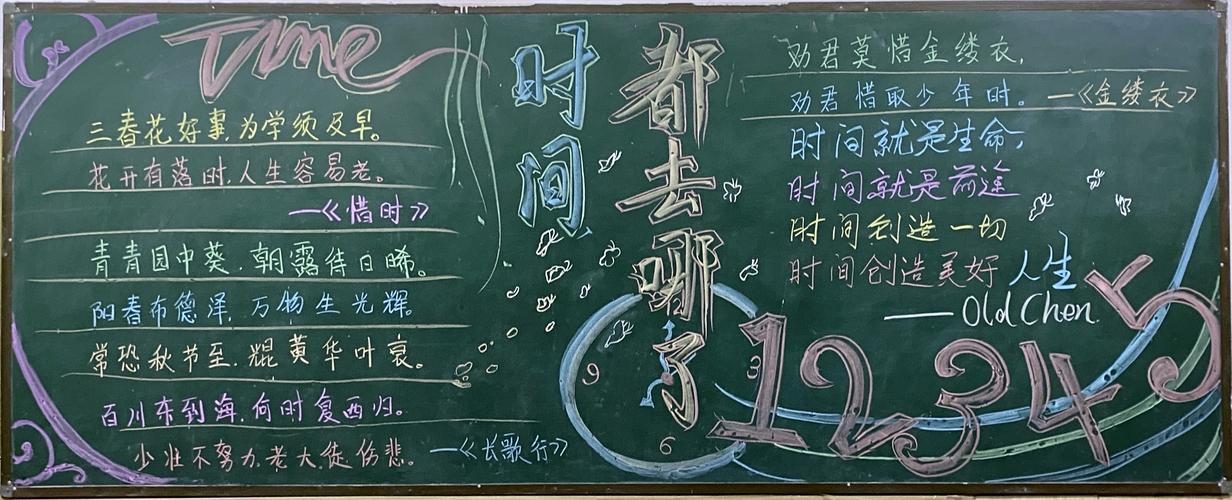 Time
三春花好事,为学须及早。
花开有落时,人生容易老。
—《惜时》
青青园中葵,朝露待日晞。
阳春布德泽,万物生光辉。
常恐秋节至,焜黄华叶衰。
百川东到海,何时复西归。
少壮不努力,老大徒伤悲。—《长歌行》
时间
都去哪了
9 3 6
劝君莫惜金缕衣,
劝君惜取少年时。—《金缕衣》
时间就是生命,
时间就是前途
时间创造一切
时间创造美好人生
——Old Chen.
1 2 3 4 5